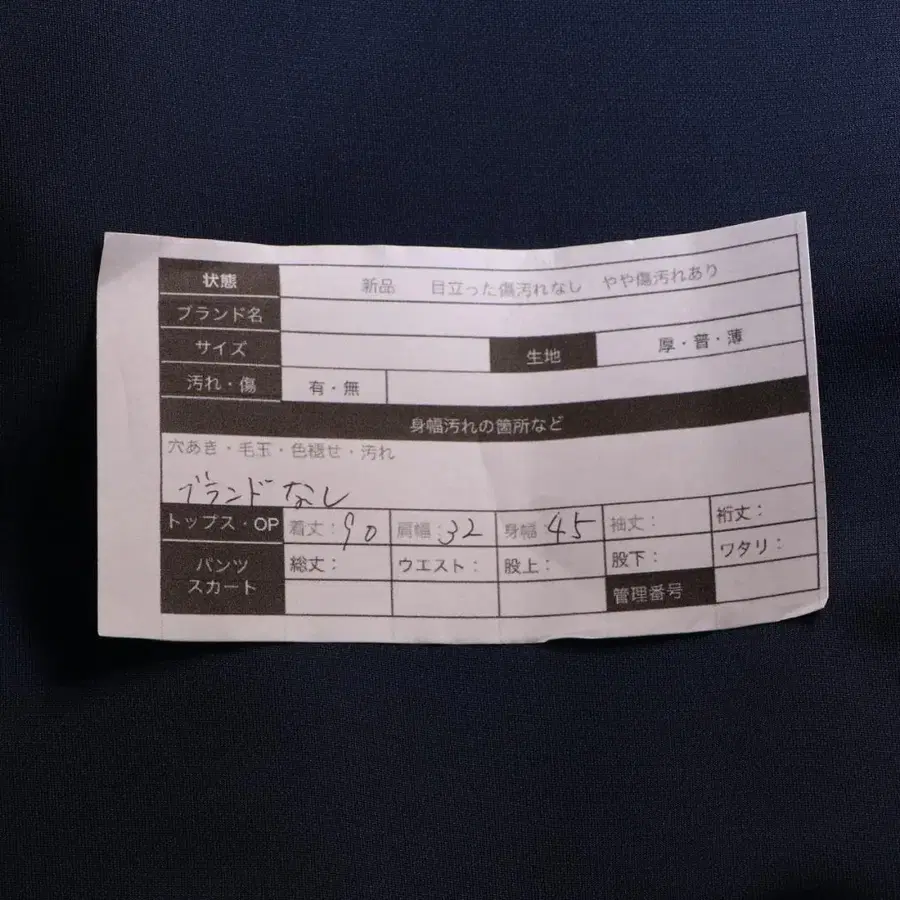 状態 新品 目立った傷汚れなし やや傷汚れあり
ブランド名
サイズ 生地 厚・普・薄
汚れ・傷 有・無
身幅汚れの箇所など
穴あき・毛玉・色褪せ・汚れ
ブランドなし
トップス・OP 着丈：90 肩幅：32 身幅 45 袖丈： 裄丈：
パンツ 総丈： ウエスト： 股上： 股下： ワタリ：
スカート 管理番号